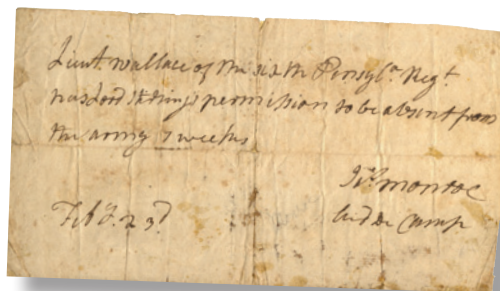 Lieut. Wallace of the sixth Pensyla. Regt.
has Lord Stirlings permission to be absent from
the army 7 weeks
Jas. Monroe
Aid de Camp
Feby. 23d